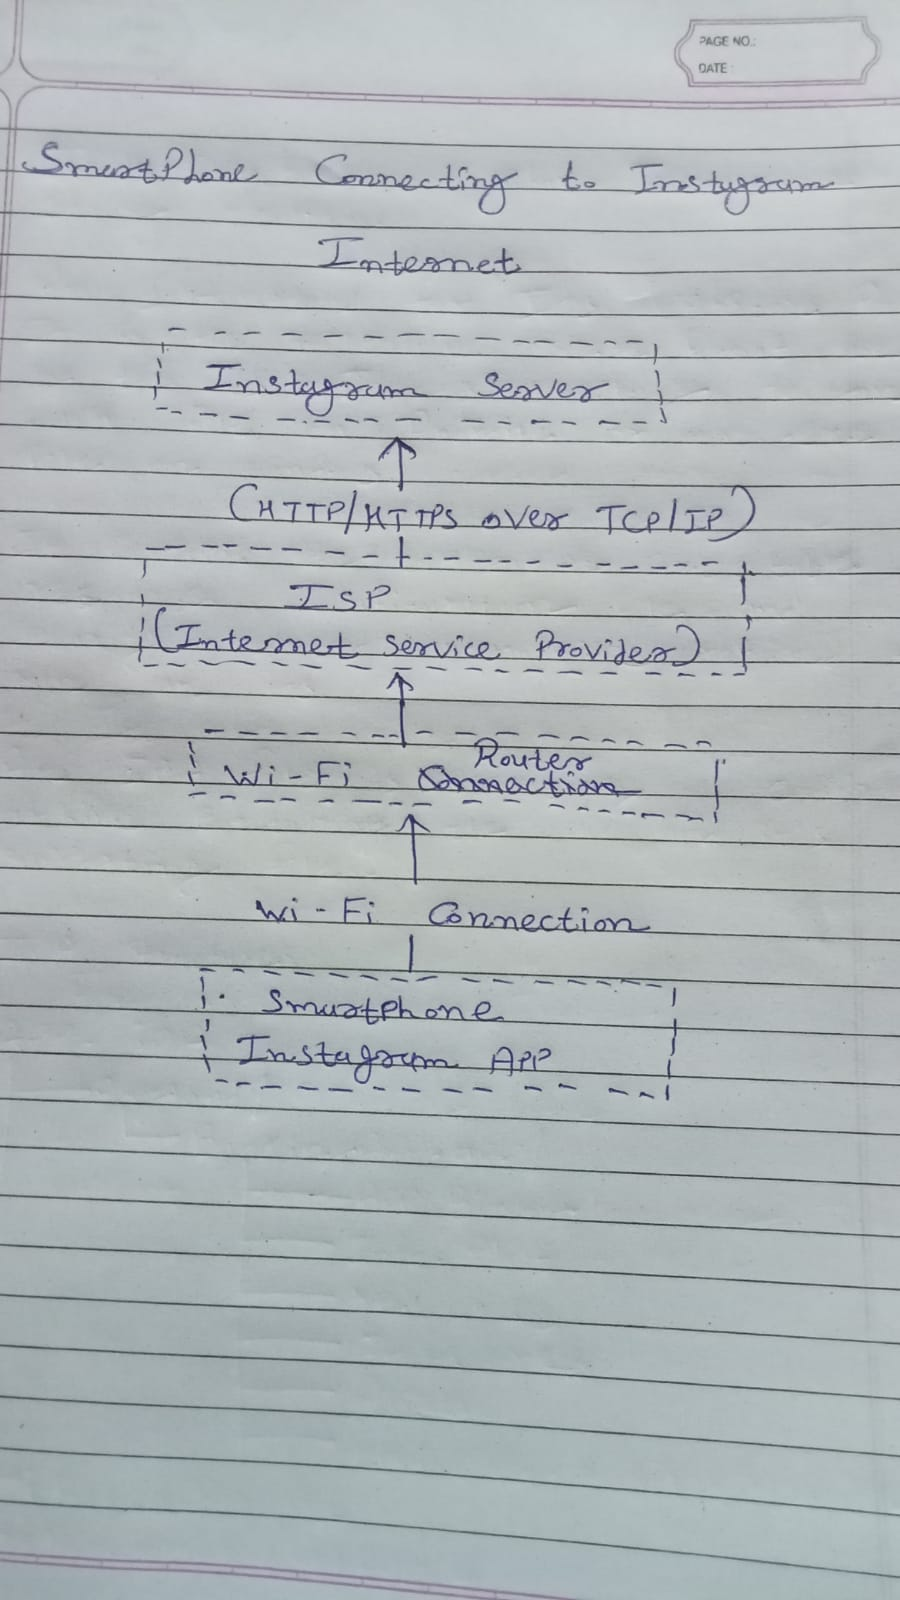 PAGE NO.:
DATE:
SmartPhone Connecting to Instygram
Internet
Instagram Server
(HTTP/HTTPS over TCP/IP)
ISP
(Internet Service Provider)
Router
Wi-Fi Connection
Wi-Fi Connection
Smartphone
Instagram APP